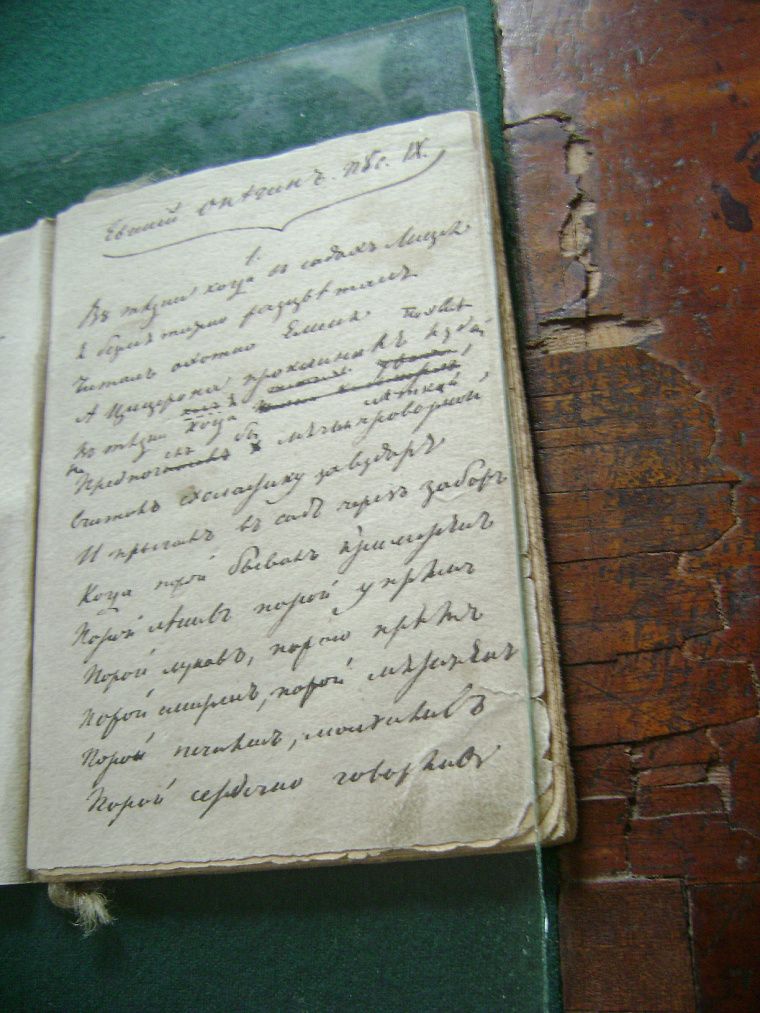 Евгений Онѣгинъ. Пѣс. IX.
1.
Въ тѣ дни когда въ садахъ Лицея
Я безмятежно разцвѣталъ
Читалъ охотно Елисея
А Цицерона проклиналъ
Въ тѣ дни когда
мячикъ проворной
Считалъ схоластику за вздоръ
И прыгалъ въ садъ черезъ заборъ
Когда порой бывалъ прилежен
Порой лѣнивъ порой упрямъ
Порой лукавъ, порою прямъ
Порой смирен, порой мятежен
Порой печаленъ, молчаливъ
Порой сердечно говорливъ